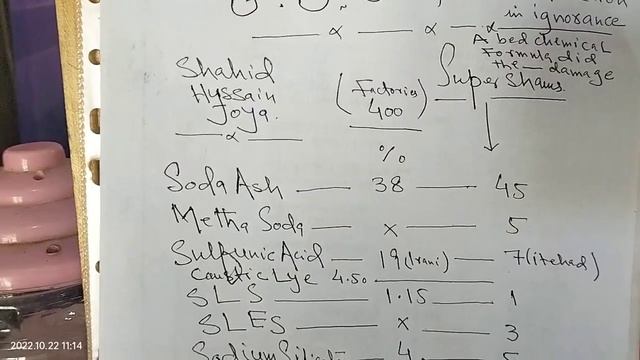 in ignorance
A bed chemical
Formula did
the damage
Shahid
Hussain
Joya.
(Factories)
400
Super Shams.
%
Soda Ash — 38 — 45
Metha Soda — x — 5
Sulfunic Acid — 19 (Irani) — 7 (itehad)
Caustic Lye 4.50
SLS — 1.15 — 1
SLES — x — 3
4
2022.10.22 11:14